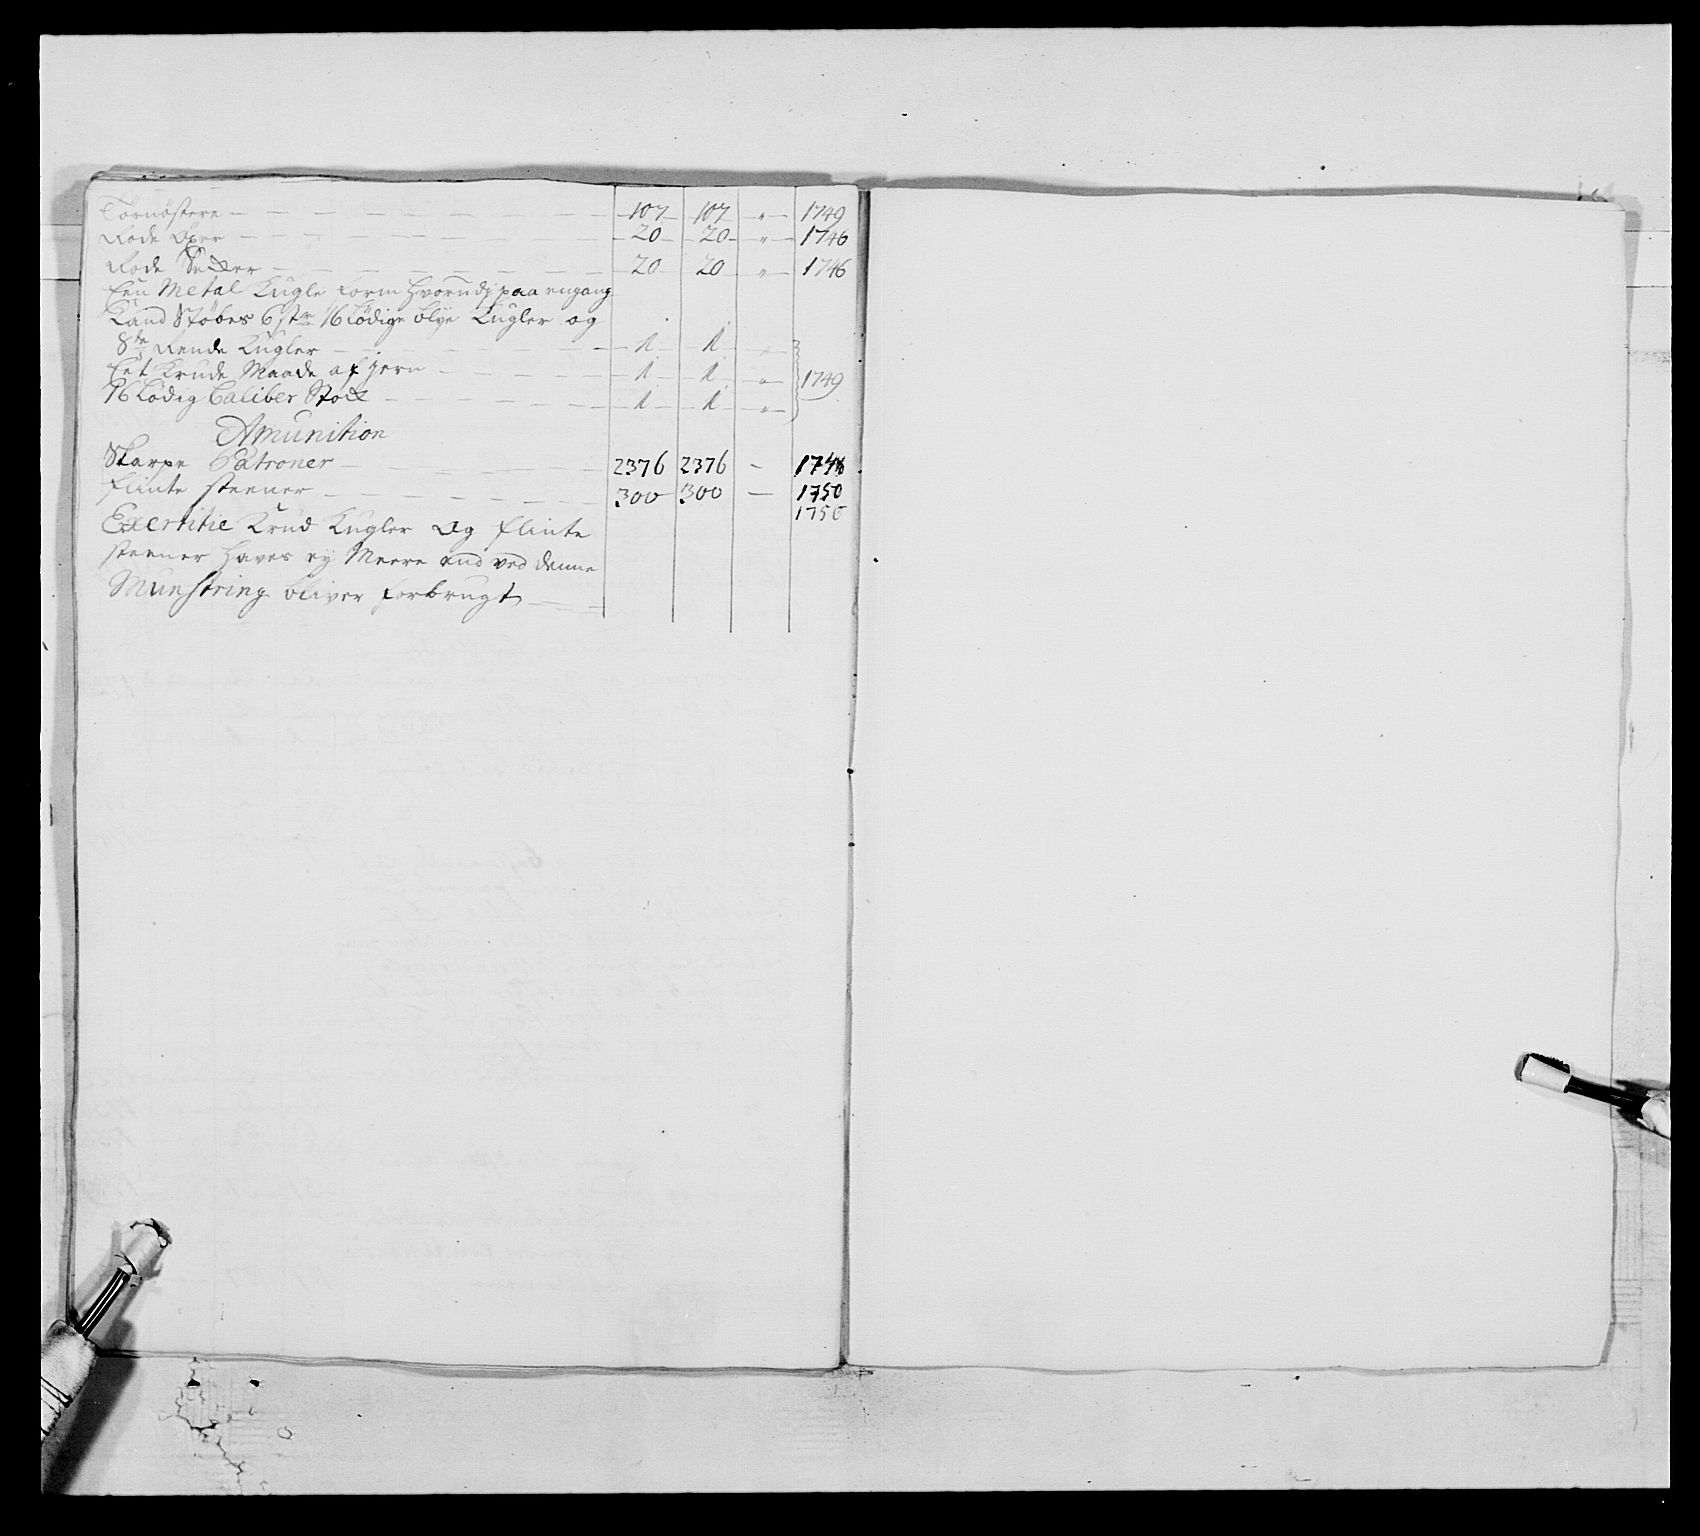 Tornøstere — 107 — 107 — " — 1749
Rode Øxer — 20 — 20 — " — 1746
Rode Sekker — 20 20 " 1746
Een Metal Kugle form hvorudj paa engang
Kand Støbes 6 str 16 lødige blye Kugler og
8te Rende Kugler — 1 — 1 — "
Eet Krude Maade af jern — 1 — 1 — " 1749
16 Lødig Caliber Stok — 1 — 1 — "
Amunition
Skarpe Patroner — 2376 2376 — 1748
flinte steener — 300 300 — 1750
Exersitie Krud Kugler og flinte 1750
steener haves ey Meere end ved denne
Munstring bliver forbrugt